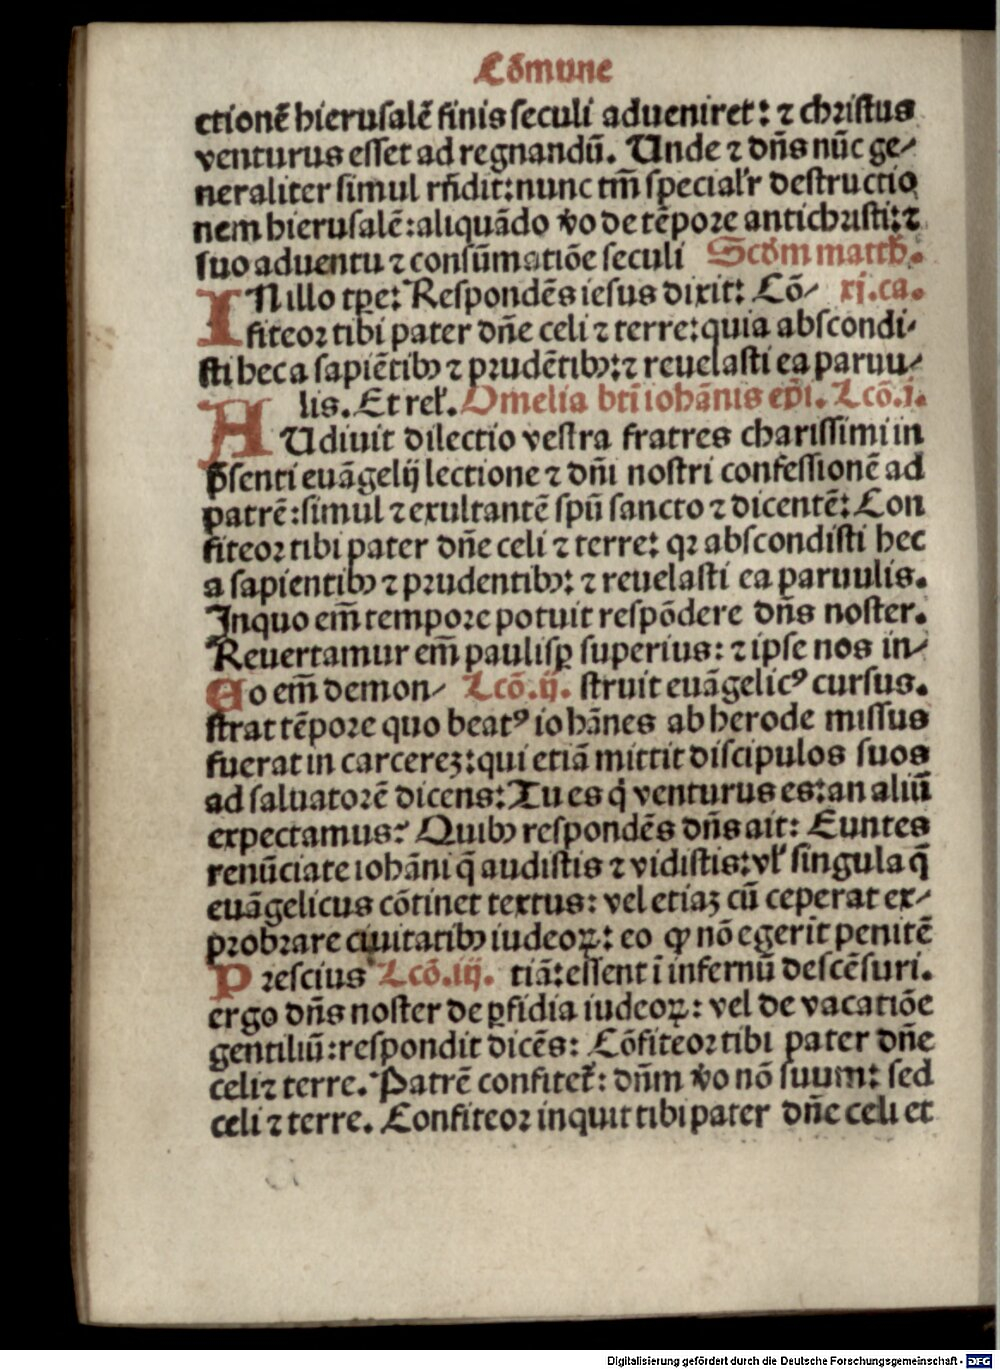 Cōmune
ctionē hierusalē finis seculi adueniret: ⁊ christus
venturus esset ad regnandū. Unde ⁊ dn̄s nūc ge⸗
neraliter simul rn̄dit: nunc tm̄ specialr̛ destructio
nem hierusalē: aliquādo v̄o de tēpore antichristi: ⁊
suo aduentu ⁊ consūmatiōe seculi Scd̄m matth̄.
IN illo tp̄e: Respondēs iesus dixit: Cō⸗ xj.ca.
fiteor tibi pater dn̄e celi ⁊ terre: quia abscondi⸗
sti hec a sapiētibꝫ ⁊ prudētibꝫ: ⁊ reuelasti ea paruu⸗
lis. Et rel̛. Omelia bt̄i iohānis ep̄i. Lcō.j.
AUdiuit dilectio vestra fratres charissimi in
p̄senti euāgelij lectione ⁊ dn̄i nostri confessionē ad
patrē: simul ⁊ exultantē spū sancto ⁊ dicentē: Con
fiteor tibi pater dn̄e celi ⁊ terre: qꝛ abscondisti hec
a sapientibꝫ ⁊ prudentibꝫ: ⁊ reuelasti ea paruulis.
In quo em̄ tempore potuit respōdere dn̄s noster.
Reuertamur em̄ paulisꝑ superius: ⁊ ipse nos in⸗
Eo em̄ demon⸗ Lcō.ij. struit euāgelicꝰ cursus.
strat tēpore quo beatꝰ iohānes ab herode missus
fuerat in carcereꝫ: qui etiā mittit discipulos suos
ad saluatorē dicens: Tu es q̇ venturus es: an aliū
expectamus? Quibꝫ respondēs dn̄s ait: Euntes
renūciate iohāni q̄ audistis ⁊ vidistis: vl̛ singula q̄
euāgelicus cōtinet textus: vel etiaꝫ cū ceperat ex⸗
probrare ciuitatibꝫ iudeoꝝ: eo ꝙ nō egerit penitē
Prescius Lcō.iij. tiā: essent ī infernū descēsuri.
ergo dn̄s noster de ꝑfidia iudeoꝝ: vel de vacatiōe
gentiliū: respondit dicēs: Cōfiteor tibi pater dn̄e
celi ⁊ terre. Patrē confitet̛: dn̄m v̄o nō suum: sed
celi ⁊ terre. Confiteor inquit tibi pater dn̄e celi et
Digitalisierung gefördert durch die Deutsche Forschungsgemeinschaft - DFG